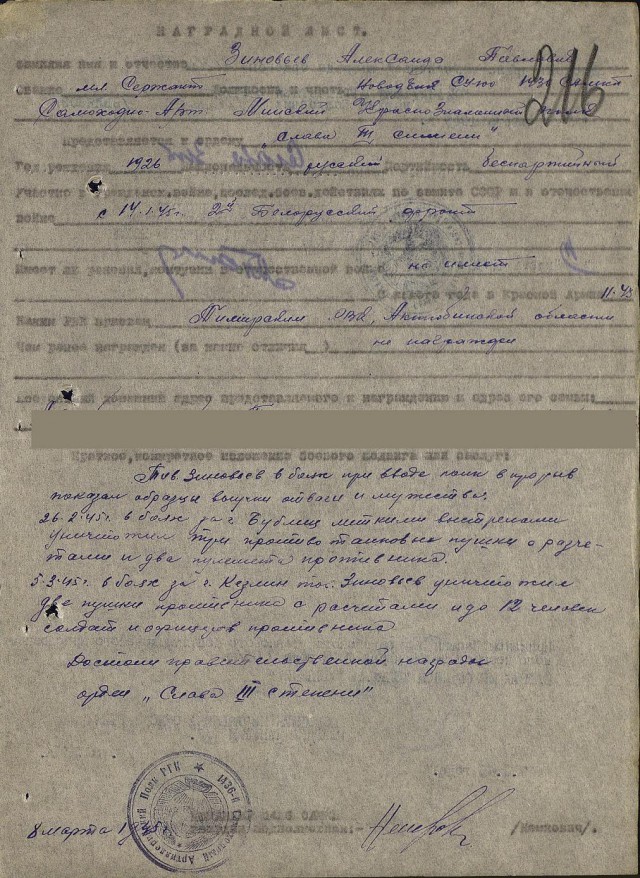 НАГРАДНОЙ ЛИСТ.
Фамилия имя и отчество Зиновьев Александр Павлович
мл Сержант наводчик СУ100
Самоходно-Арт Минский Краснознаменный
Представляется к ордену „Слава III степени"
Год рождения 1926 русский беспартийный
Участие в гражданск.войне, послед.боев.действиях по защите СССР и в отечественной
войне с 14.1.45г. 2й Белорусский фронт
Имеет ли ранения,контузии в отечественной войне не имеет
С какого года в Красной Армии 11.43
Каким РВК призван РВК, Актюбинской области
Чем ранее награжден (за какие отличия) не награжден
домашний адрес представляемого к награждению и адрес его семьи:
Краткое,конкретное изложение боевого подвига или заслуг:
Тов Зиновьев в боях при вводе полк в прорыв
показал образцы выучки отваги и мужества.
26.2.45г. в боях за г. Бублиц меткими выстрелами
уничтожил три противотанковые пушки с расче-
тами и два пулемета противника.
5.3.45г. в боях за г. Кезлин тов. Зиновьев уничтожил
две пушки противника с расчетами и до 12 человек
солдат и офицеров противника
Достоин правительственной награды
орден „Слава III степени"
1436-й Артиллерийский Полк РГК
8 марта 1945г.
подполковник:-